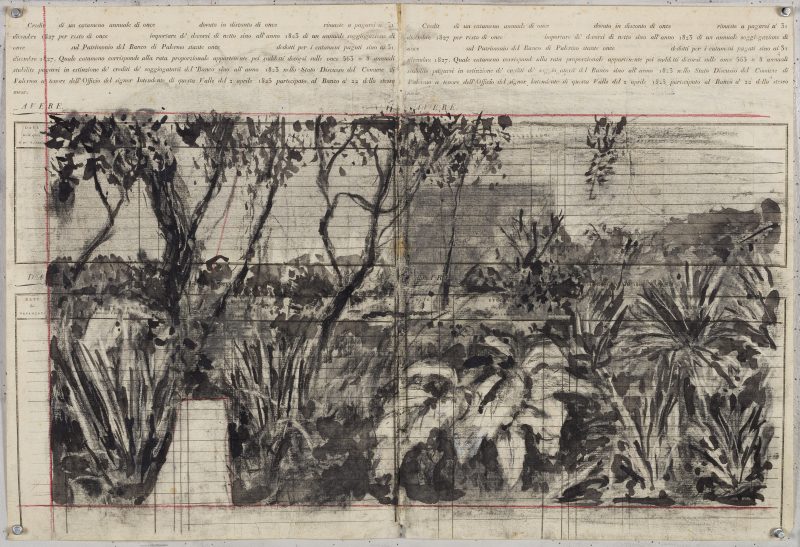 Credit di un catameno annuale di once dovuto in disconto di once rimaste a pagarsi a' 31
dicembre 1827 per resto di once importare de' decorsi di netto sino all'anno 1823 di un annuale soggiogazione di
once sul Patrimonio del Banco di Palermo stante once dedotti per i catameni pagati sino a' 31
dicembre 1827. Quale catameno corrisponde alla rata proporzionale appartenente pei suddetti decorsi sulle once 563 0 8 annuali
stabilite pagarsi in estinzione de' crediti de' soggiogatarj del Banco sino all'anno 1823 nello Stato Discusso del Comune di
Palermo a tenore dell'Officio del signor Intendente di questa Valle del 2 aprile 1825 partecipato al Banco a' 22 dello stesso
mese.
Credit di un catameno annuale di once dovuto in disconto di once rimaste a pagarsi a' 31
dicembre 1827 per resto di once importare de' decorsi di netto sino all'anno 1823 di un annuale soggiogazione di
once sul Patrimonio del Banco di Palermo stante once dedotti per i catameni pagati sino a' 31
dicembre 1827. Quale catameno corrisponde alla rata proporzionale appartenente pei suddetti decorsi sulle once 563 0 8 annuali
stabilite pagarsi in estinzione de' crediti de' soggiogatarj del Banco sino all'anno 1823 nello Stato Discusso del Comune di
Palermo a tenore dell'Officio del signor Intendente di questa Valle del 2 aprile 1825 partecipato al Banco a' 22 dello stesso
mese.
AVERE
AVERE